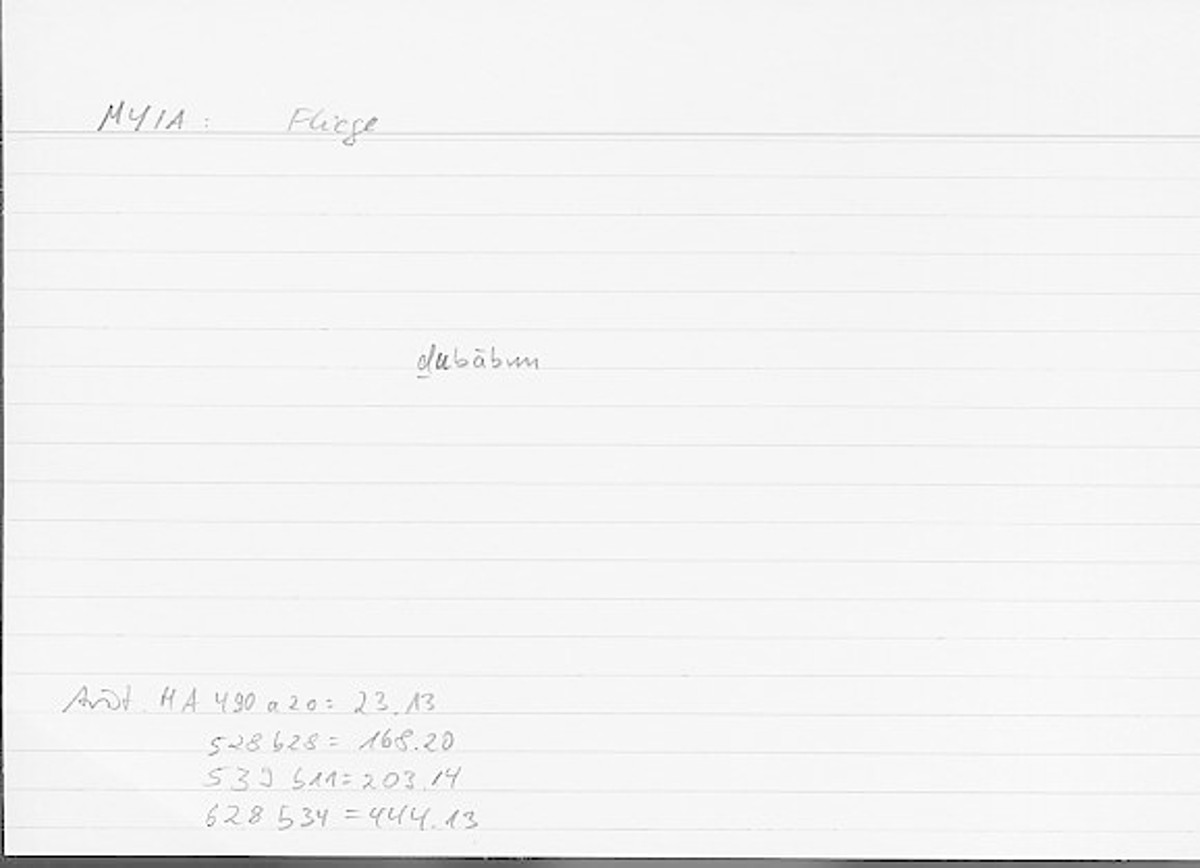 MYIA : Fliege
ḏubābun
Arist. HA 490 a 20 = 23.13
528 b 28 = 168.20
539 b 11 = 203.14
628 b 34 = 444.13